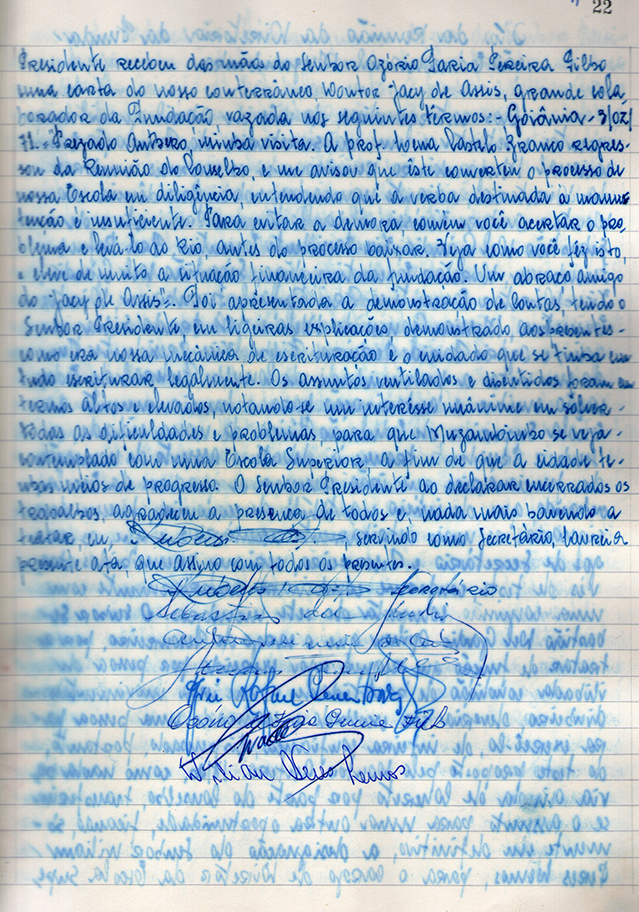 22
Presidente recebeu das mão do Senhor Ozório Faria Pereira Filho
uma carta do nosso conterrâneo, Doutor Jacy de Assis, grande cola,
borador da Fundação vazada nos seguintes termos:- Goiânia - 3/02/
71. Prezado Antero, minha visita. A prof. Castelo Branco regres-
sou da Reunião do Conselho, e me avisou que êste converteu o processo de
nossa Escola em diligência, entendendo que a verba destinada à manu,
tenção é insuficiente. Para evitar a demora, convém você acertar o pro,
blema e levá-lo ao Rio, antes do processo baixar. Veja como você fez isto,
e eleve de muito a situação financeira da fundação. Um abraço amigo
do "Jacy de Assis". Foi apresentada a demonstração de contas, tendo o
Senhor Presidente, em ligeiras explicações, demonstrado aos presentes-
como era nossa mecânica de escrituração e o cuidado que se tinha em
tudo escriturar legalmente. Os assuntos ventilados e discutidos foram em
termos altos e elevados, notando-se um interêsse unânime em solver-
todas as dificuldades e problemas, para que Muzambinho se veja-
contemplado com uma Escola Superior, a fim de que a cidade te-
nha meios de progresso. O Senhor Presidente ao declarar encerrados os
trabalhos, agradeceu a presença de todos e, nada mais havendo a
tratar, eu servindo como Secretário, lavrei a
presente ata, que assino com todos os presentes.
Secretário
Sebastião
Ozório Faria Pereira Filho
Lemos